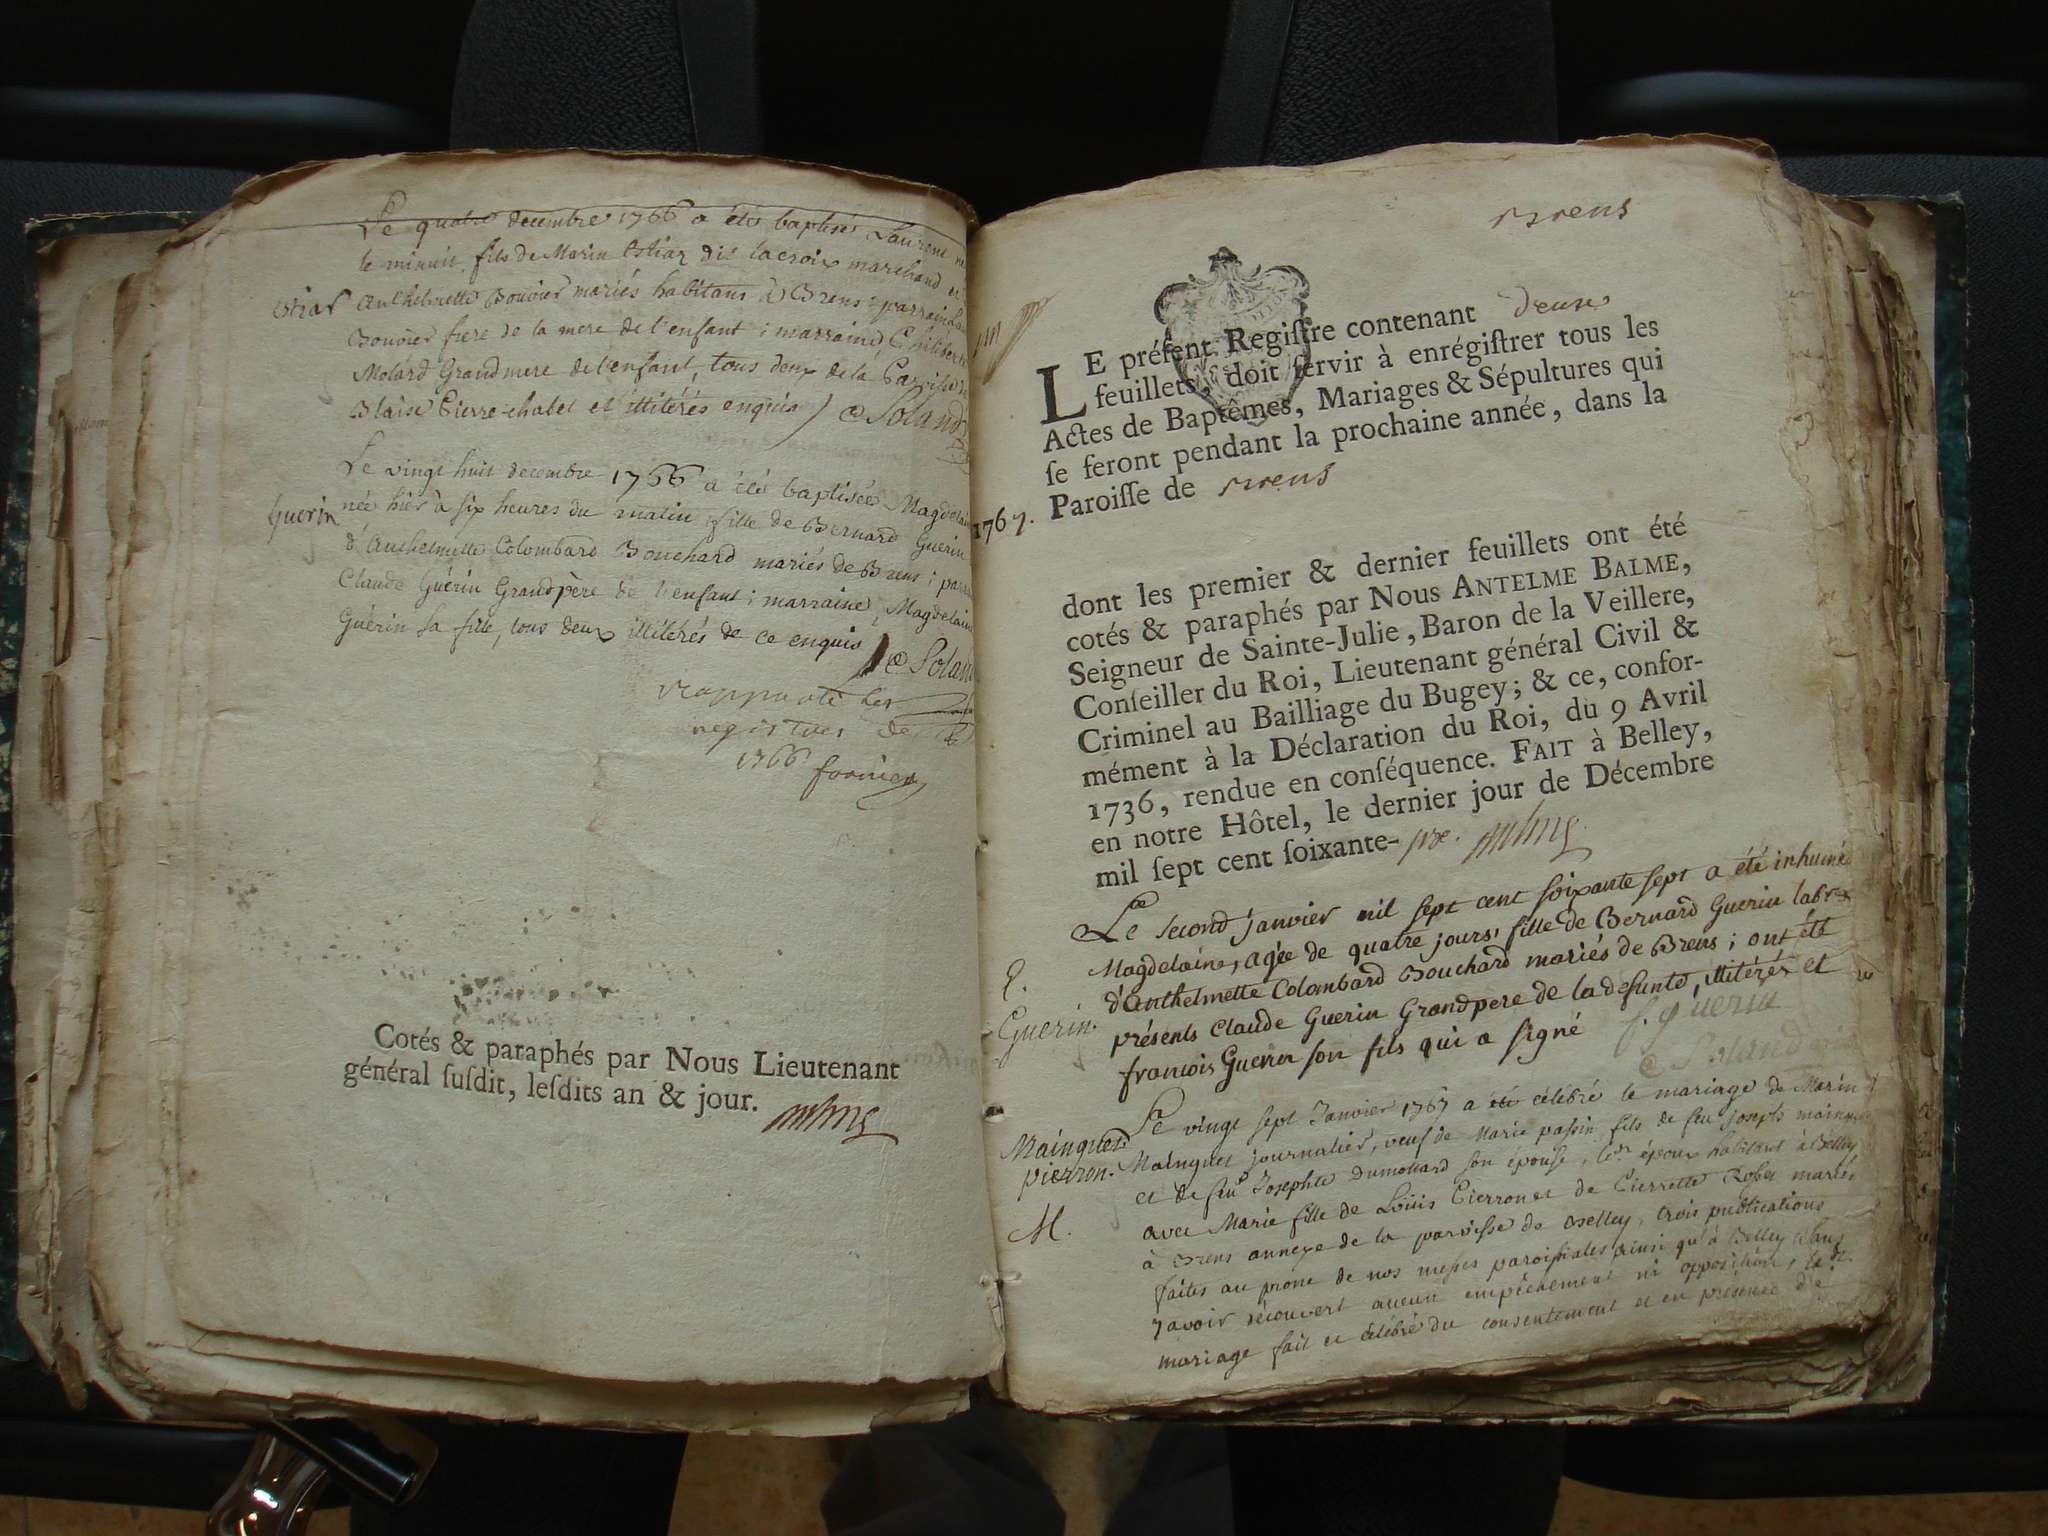 Le quatre decembre 1766 a été baptisé Laurent
le minuit fils de Marin Estiar dit lacroix marchand et
Estiar
Anthelmette Bouvier mariés habitans à Brens ; parrain
Bouvier frere de la mere de l'enfant ; marraine, Philiberte
Molard Grandmere de l'enfant, tous deux de la Paroisse
Blaise Pierre-chatel et illitérés enquis
Soland
Le vingt huit decembre 1766 a été baptisée Magdelain
Guerin
née hier à six heures du matin, fille de Bernard Guerin
d'Anthelmette Colombard Bouchard mariés de Brens ;
Claude Guérin Grandpère de l'enfant ; marraine, Magdelain
Guérin sa fille, tous deux illitérés de ce enquis
Soland
rapporté les
registres de
1766
Cotés & paraphés par Nous Lieutenant
général ſuſdit, leſdits an & jour.
Brens
LE préſent Regiſtre contenant deux
feuillets, doit ſervir à enrégiſtrer tous les
Actes de Baptêmes, Mariages & Sépultures qui
ſe feront pendant la prochaine année, dans la
Paroiſſe de Brens
1767.
dont les premier & dernier feuillets ont été
cotés & paraphés par Nous ANTELME BALME,
Seigneur de Sainte-Julie, Baron de la Veillere,
Conſeiller du Roi, Lieutenant général Civil &
Criminel au Bailliage du Bugey ; & ce, confor-
mément à la Déclaration du Roi, du 9 Avril
1736, rendue en conſéquence. FAIT à Belley,
en notre Hôtel, le dernier jour de Décembre
mil ſept cent ſoixante-
Le second janvier mil sept cent soixante sept a été inhumée
Magdelaine, agée de quatre jours, fille de Bernard Guerin labr
d'Anthelmette Colombard Bouchard mariés de Brens ; ont été
Guerin.
présents Claude Guerin Grandpere de la defunte, illitérés et
francois Guerin son fils qui a signé
f. guerin
Soland
Le vingt sept Janvier 1767 a été célébré le mariage de Marin
Mainguet
pierron.
Mainguet journalier, veuf de Marie passin fils de feu joseph
et de feu Josephte Dumollard son épouse, led. époux habitant à Belley
M.
avec Marie fille de Loüis Pierron et de Pierrette Rober mariés
à Brens annexe de la paroisse de Belley, trois publications
faites au prone de nos messes paroissiales ainsi qu'à Belley sans
y avoir découvert aucun empêchement ni opposition, led.
mariage fait et célébré du consentement et en présence de